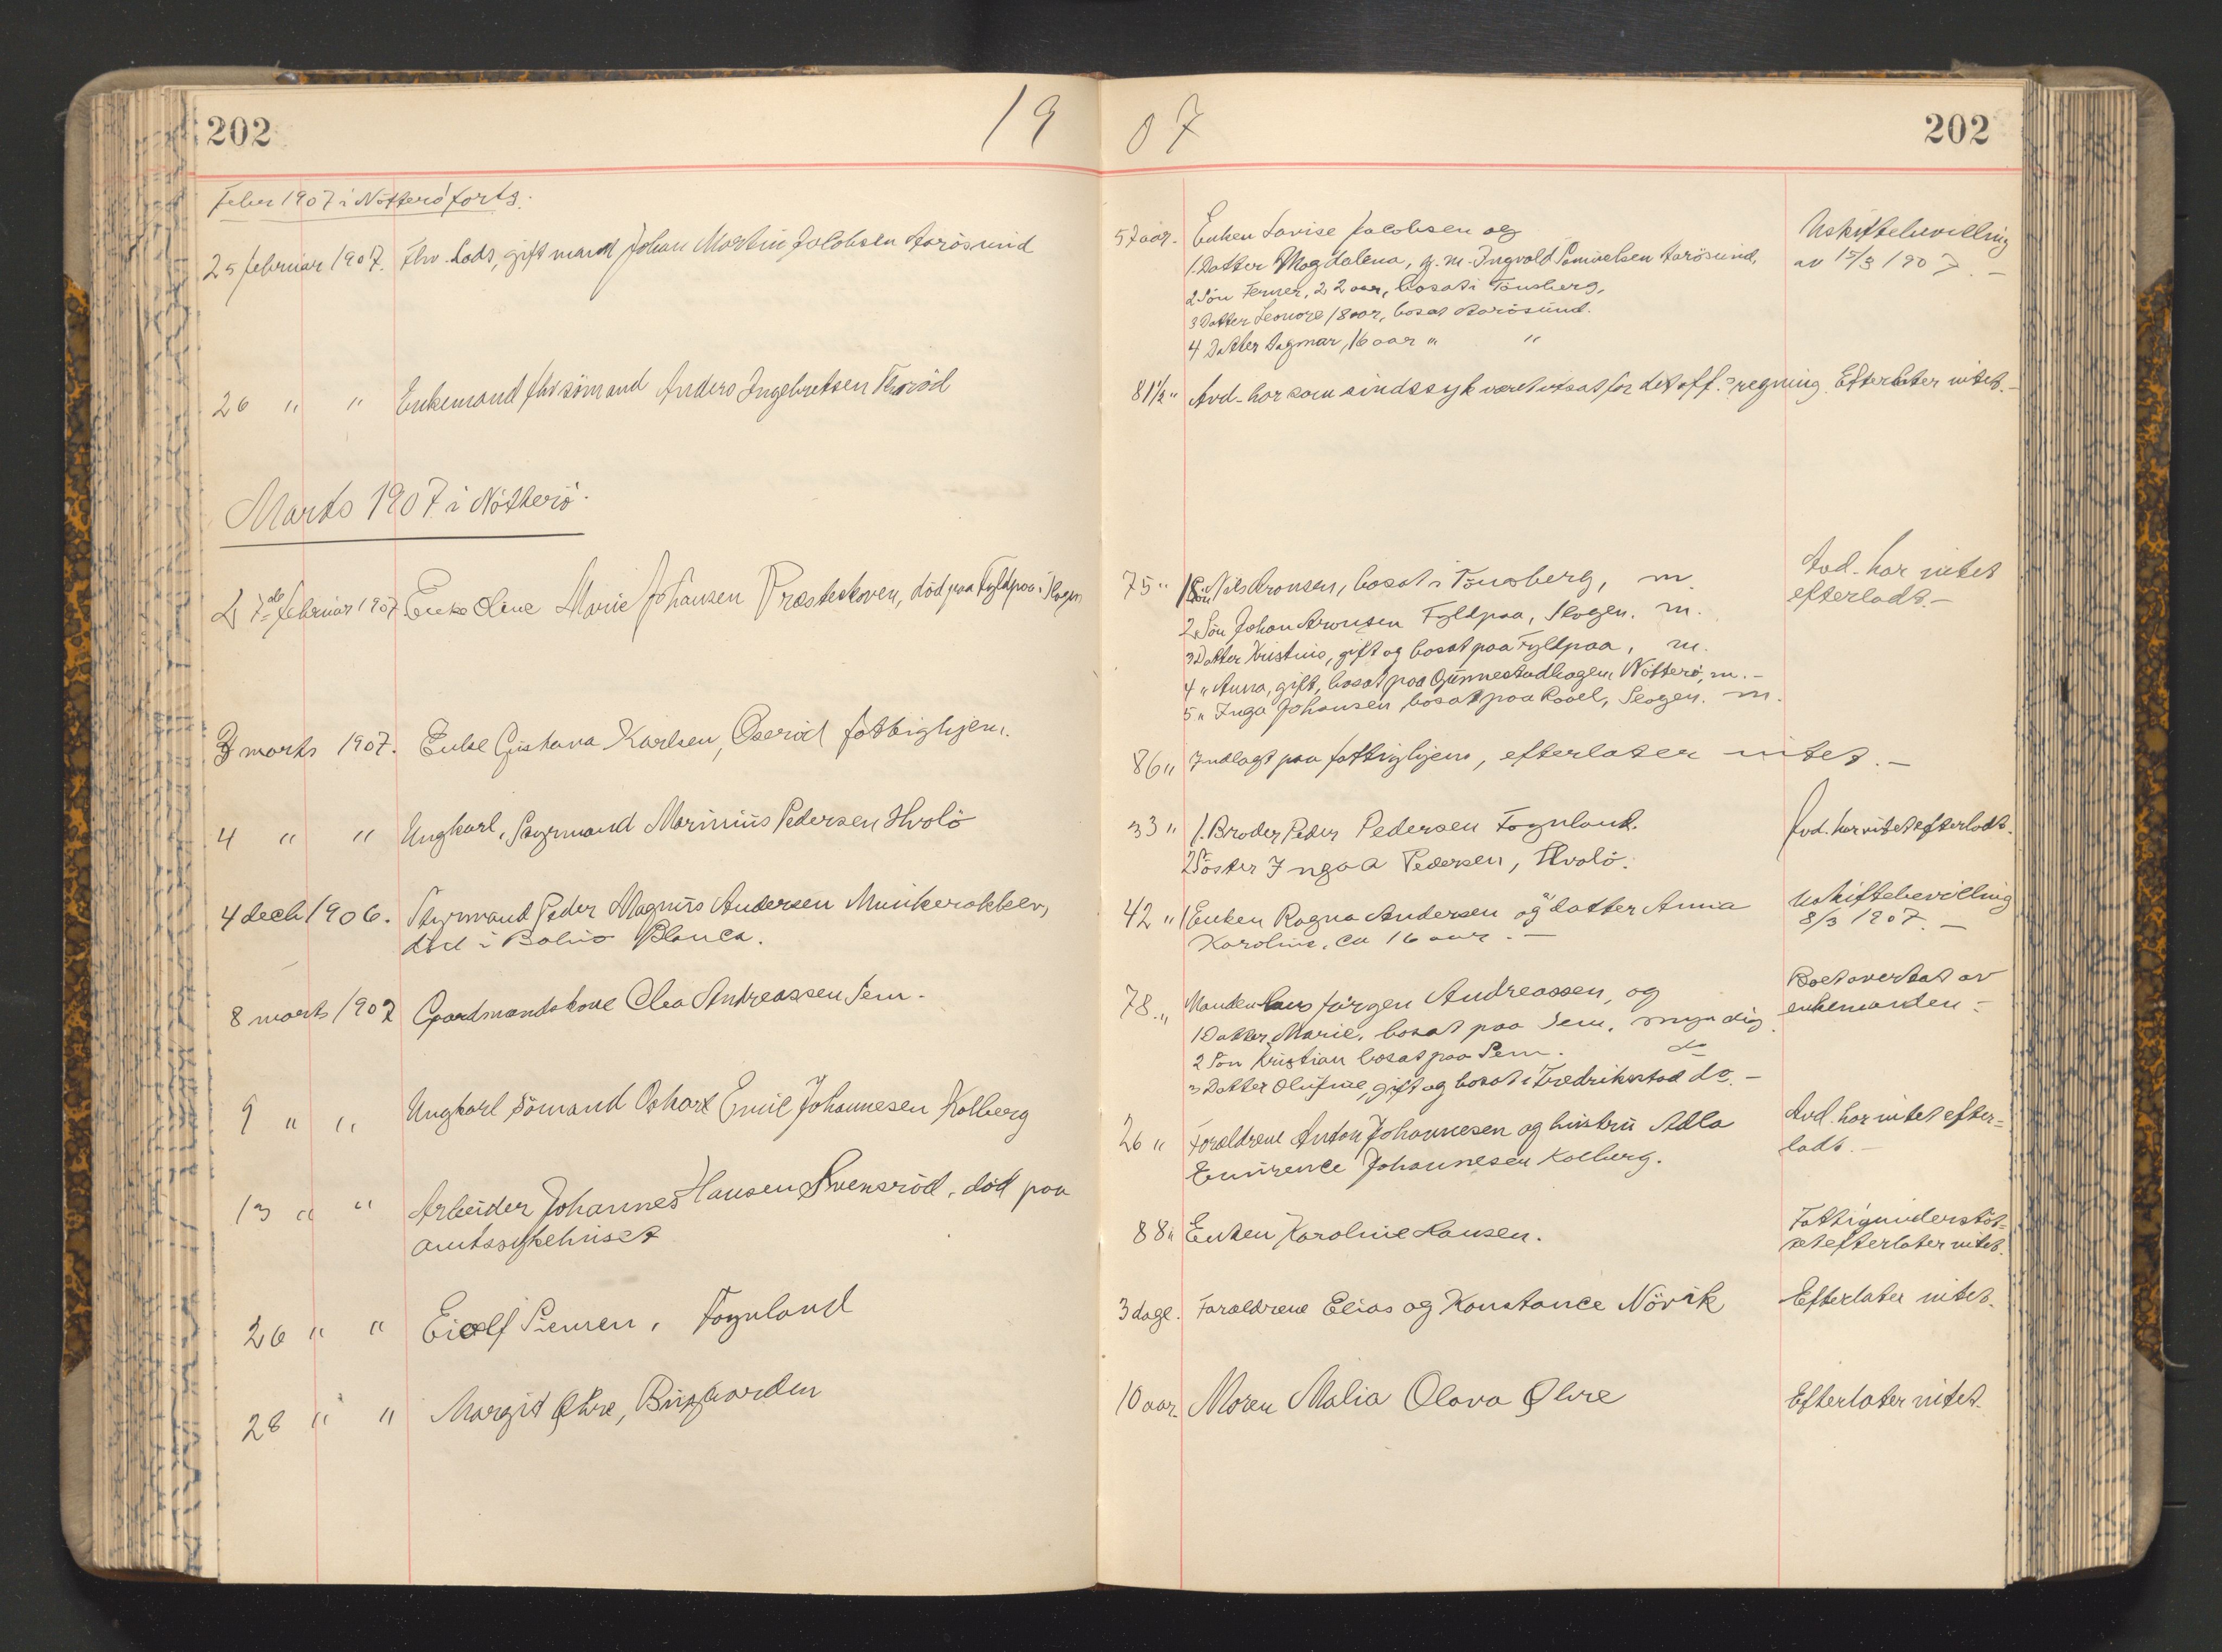 202
19
07
202
Febr 1907 i Nötterö forts.
25 februar 1907. Fhv. Lods, gift mand Johan Martin Jacobsen Aarösund
57 aar. Enken Lovise Jacobsen og
1. Datter Magdalena, g. m. Ingvald Samuelsen Aarösund,
2 Sön Ferner, 22 aar, bosat i Tönsberg,
3 Datter Leonore 18 aar, bosat Aarösund.
4 Datter Dagmar, 16 aar " "
Uskiftebevilling
av 15/3 1907. –
26 " " Enkemand fhv sömand Anders Ingebretsen Thoröd
81½ " Avd. har som sindssyk været utsat for det off. regning. Efterlater intet. –
Marts 1907 i Nötterö.
27de februar 1907 Enke Oline Marie Johansen Presteskoven, död paa Fyldpaa i Skogen
75 " 1 Sön Nils Aronsen, bosat i Tönsberg, m.
2 Sön Johan Aronsen Fyldpaa, Skogen. m.
3 Datter Kristine, gift og bosat paa Fyldpaa, m.
4 " Anna, gift, bosat paa Gunnestadhagen Nötterö, m. –
5 " Inga Johansen bosat paa Roael, Skogen. m.
Avd. har intet
efterladt. –
3 marts 1907. Enke Gustava Karlsen, Oseröd fattighjem.
86 " Indlagt paa fattighjem, efterlater intet. –
4 " " Ungkarl, Styrmand Marinius Pedersen Hvalö
33 " 1. Broder Peder Pedersen Føynland.
2 Söster Ingaa Pedersen, Hvalö.
Avd. har intet efterladt.
4 decb 1906. Styrmand Peder Magnus Andersen Munkerekkev,
död i Bahia Blanca.
42 " 1 Enken Ragna Andersen og datter Anna
Karoline, ca 16 aar. –
Uskiftebevilling
8/3 1907. –
8 marts 1907 Gaardmandskone Elea Andreassen Sem.
78. " Manden Lars Jörgen Andreassen, og
1 Datter Marie, bosat paa Sem, myndig.
2 Sön Kristian bosat paa Sem. do
3 Datter Olufine, gift og bosat i Fredrikstad do. –
Boet overtat av
enkemanden –
9 " " Ungkarl sömand Oskar Emil Johannesen Kolberg
26 " Forældrene Anton Johannesen og hustru Adla
Emirence Johannesen Kolberg.
Avd. har intet efter=
ladt. –
13 " " Arbeider Johannes Hansen Svensröd, död paa
amtssykehuset
88 " Enken Karoline Hansen.
Fattigunderstöt=
tet efterlater intet.
26 " " Eiolf Siemen, Føynland
3 dage. Forældrene Elias og Konstance Növik
Efterlater intet.
28 " " Margit Øhre, Buggaarden
10 aar. Moren Malia Olava Øhre
Efterlater intet.